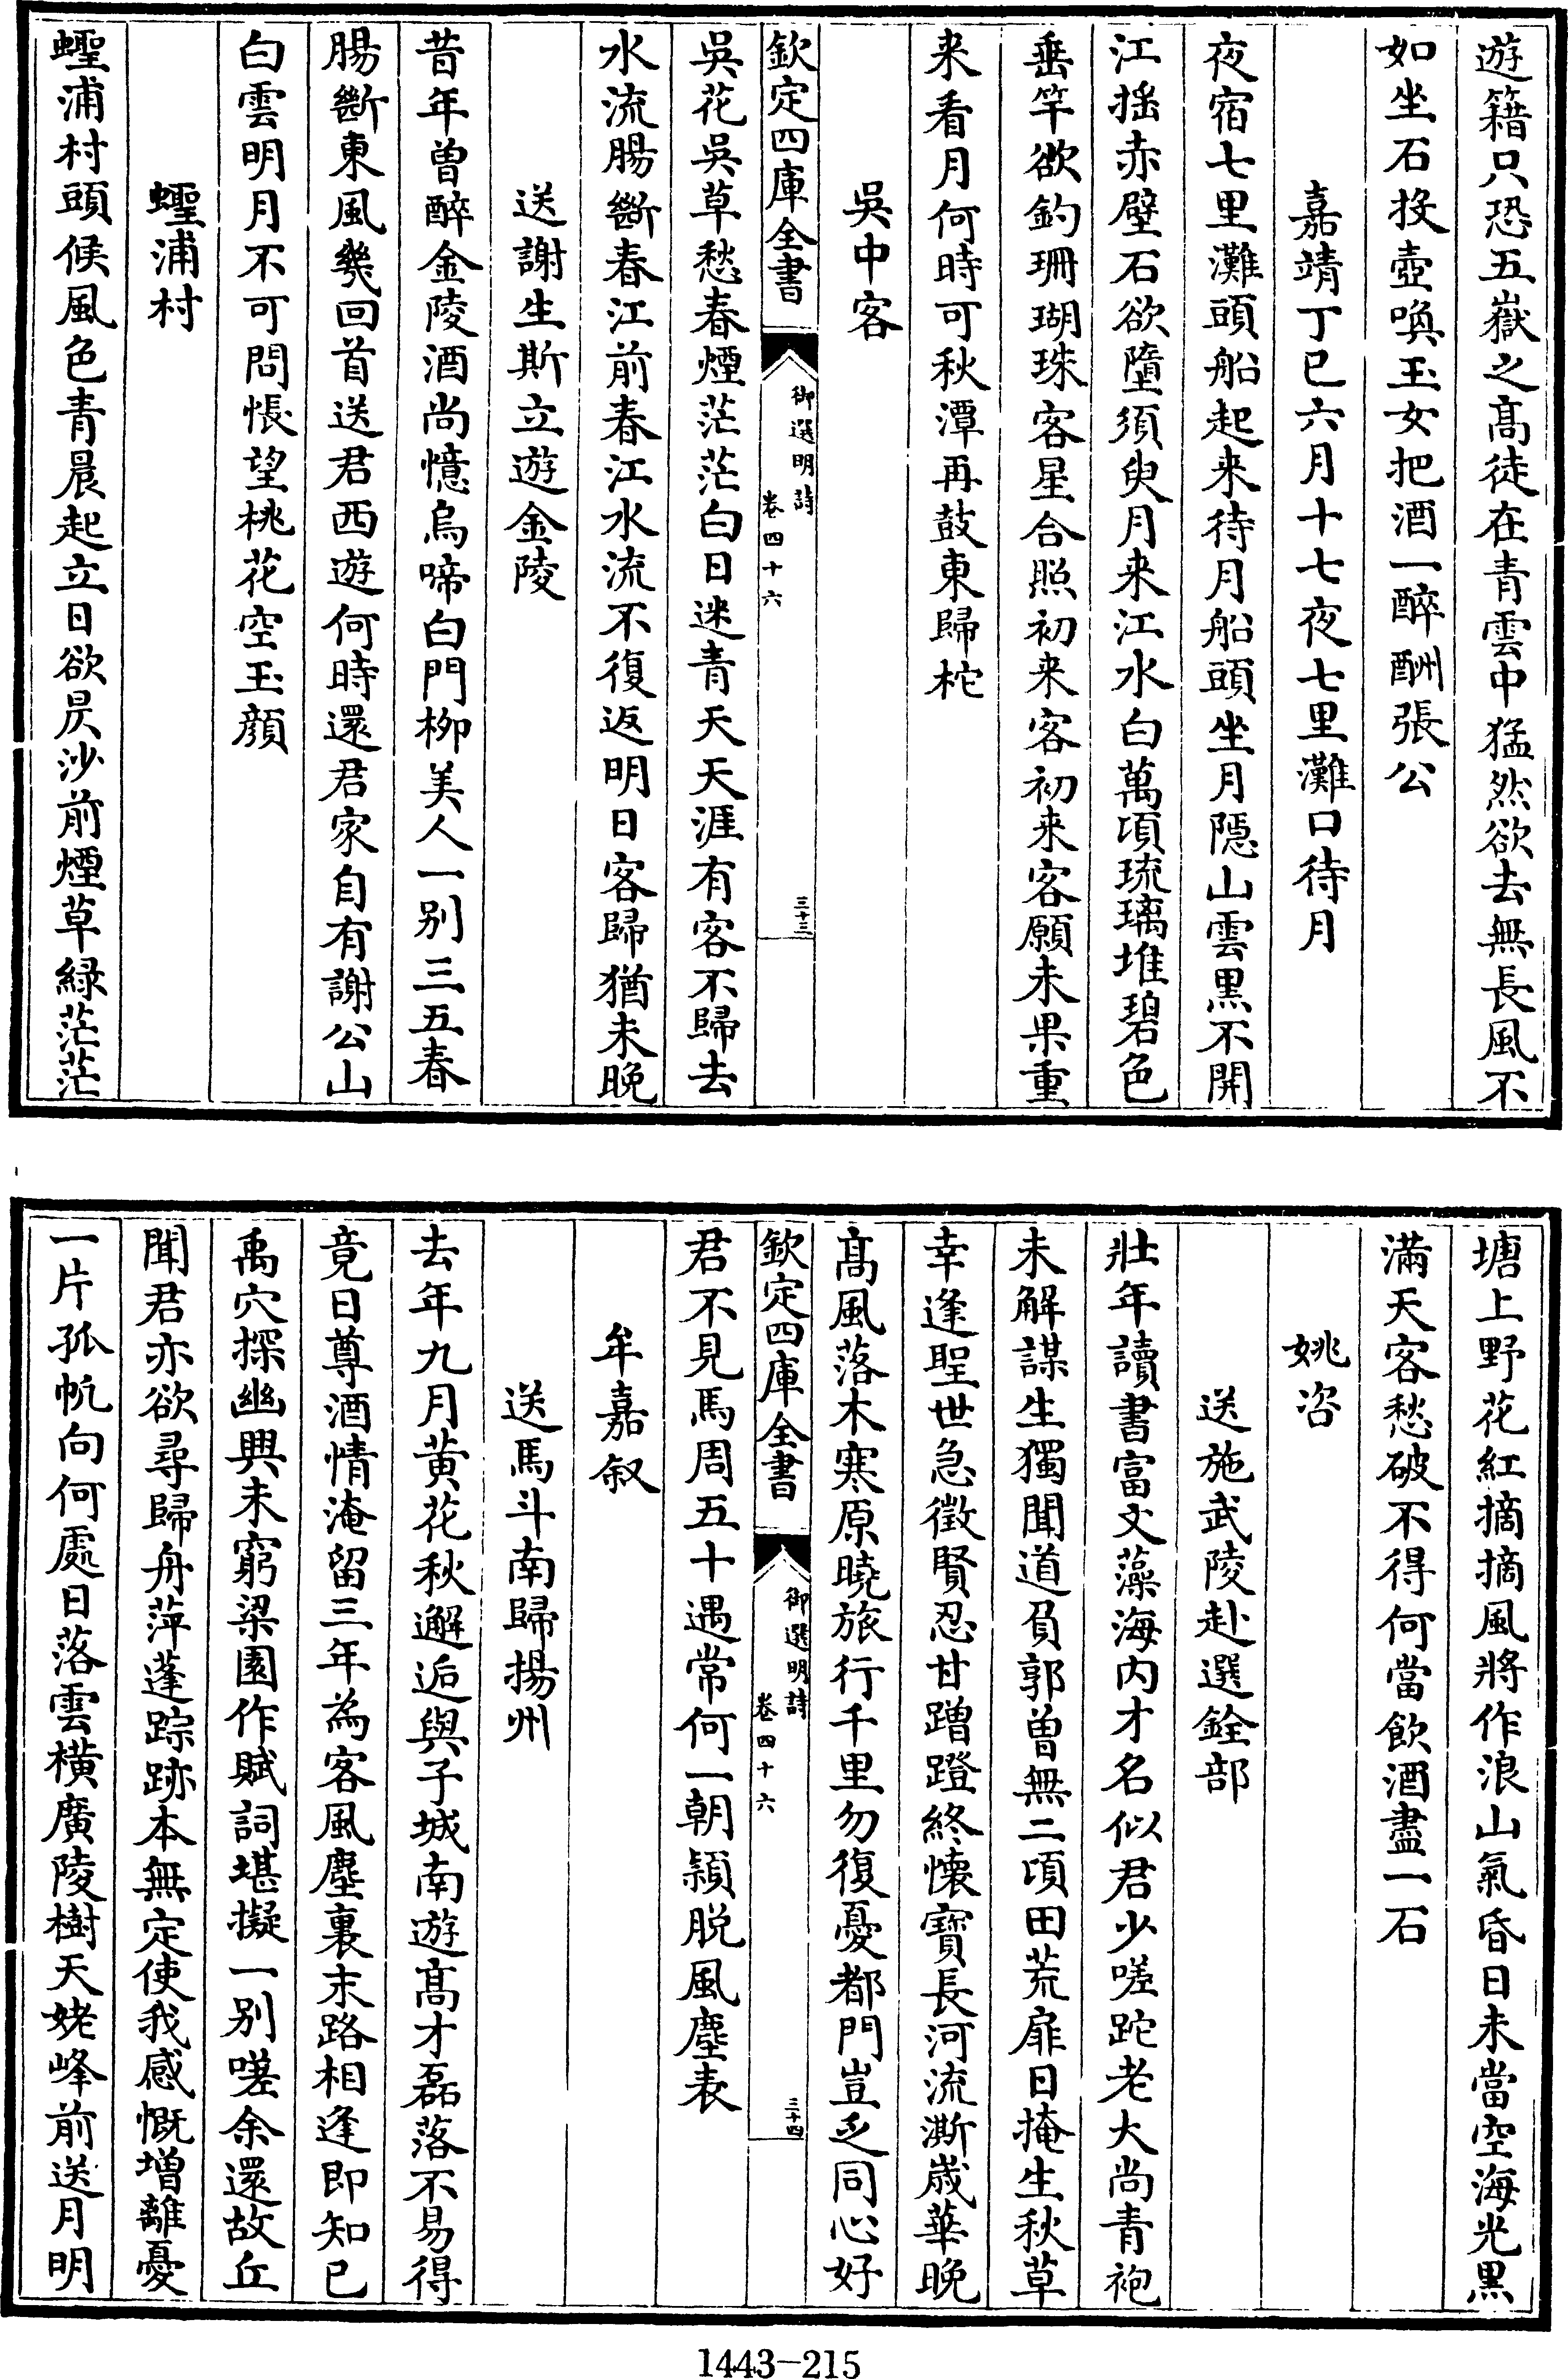 遊籍只恐五嶽之髙徒在青雲中猛然欲去無長風不
如坐石投壺喚玉女把酒一醉酬張公
嘉靖丁巳六月十七夜七里灘口待月
夜宿七里灘頭船起来待月船頭坐月隠山雲黒不開
江揺赤壁石欲墮須臾月来江水白萬頃琉璃堆碧色
垂竿欲釣珊瑚珠客星合照初来客初来客願未果重
来看月何時可秋潭再鼓東歸柁
吳中客
欽定四庫全書
御選明詩
卷四十六
三十三
吳花吳草愁春煙茫茫白日迷青天天涯有客不歸去
水流腸斷春江前春江水流不復返明日客歸猶未晚
送謝生斯立遊金陵
昔年曽醉金陵酒尚憶烏啼白門栁美人一别三五春
腸斷東風幾回首送君西遊何時還君家自有謝公山
白雲明月不可問悵望桃花空玉顔
蟶浦村
蟶浦村頭候風色青晨起立日欲昃沙前煙草緑茫茫
塘上野花紅摘摘風將作浪山氣昏日未當空海光黒
滿天客愁破不得何當飲酒盡一石
姚咨
送施武陵赴選銓部
壯年讀書富文藻海内才名似君少嗟跎老大尚青袍
未解謀生獨聞道負郭曽無二頃田荒扉日掩生秋草
幸逢聖世急徴賢忍甘蹭蹬終懐寳長河流澌歳華晚
髙風落木寒原曉旅行千里勿復憂都門豈乏同心好
欽定四庫全書
御選明詩
卷四十六
三十四
君不見馬周五十遇常何一朝穎脱風塵表
牟嘉叙
送馬斗南歸揚州
去年九月黄花秋邂逅與子城南遊髙才磊落不易得
竟日尊酒情淹留三年為客風塵裏末路相逢即知已
禹穴探幽興未窮梁園作賦詞堪擬一别嗟余還故丘
聞君亦欲尋歸舟萍蓬踪跡本無定使我感慨増離憂
一片孤帆向何處日落雲横廣陵樹天姥峰前送月明
1443-215